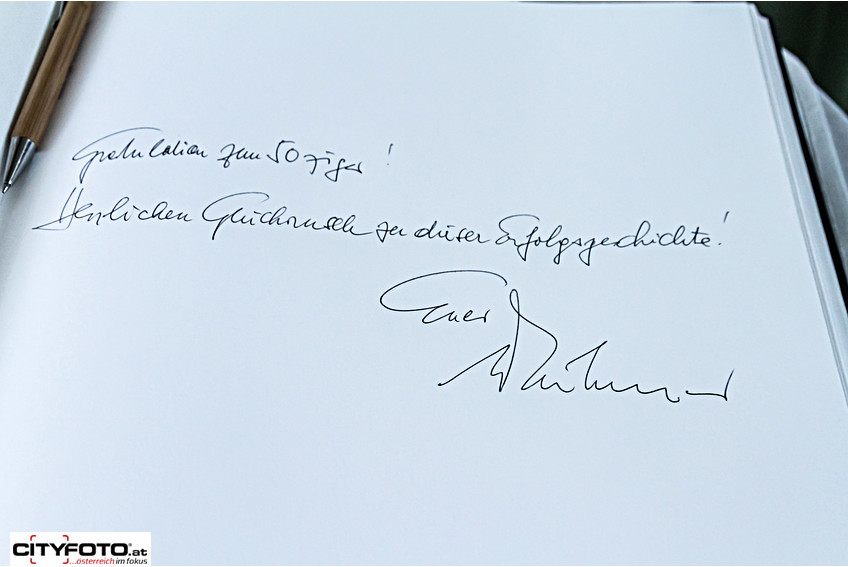 Gratulation zum 50ziger!
Herzlichen Glückwunsch zu dieser Erfolgsgeschichte!
Euer
CITYFOTO®.at
...österreich im fokus